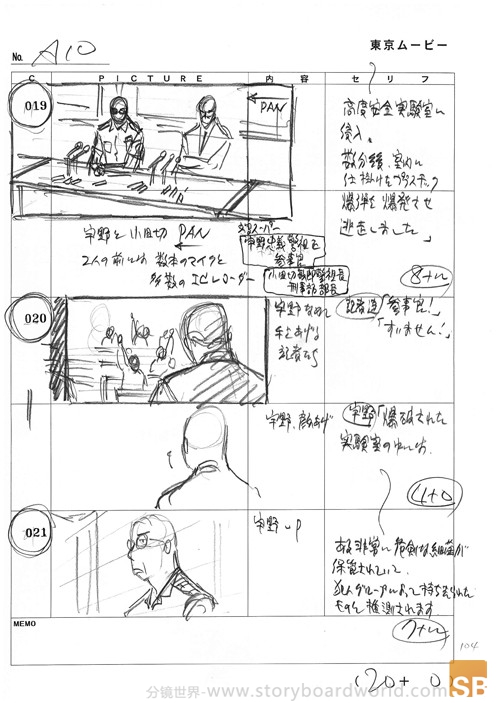 No. A10
東京ムービー
C PICTURE 内容 セリフ
019
PAN
高度安全実験室に
侵入。
数分後、室内に
仕掛けたプラスチック
爆弾を爆発させ
逃走しました」
宇野と小田切 PAN
2人の前には 数本のマイクと
多数のICレコーダー
参事官
刑事部課長
8+12
020
宇野なめて
手をあげる
記者たち
記者達「参事官!」
「すいません!」
宇野、顔あげ
宇野「爆破された
実験室の中には
4+0
021
宇野 up
ある非常に危険な細菌が
保管されていて、
犯人グループによって持ち去られた
ものと推測されます
7+12
MEMO
104
(20+0)
分镜世界-www.storyboardworld.com
SB